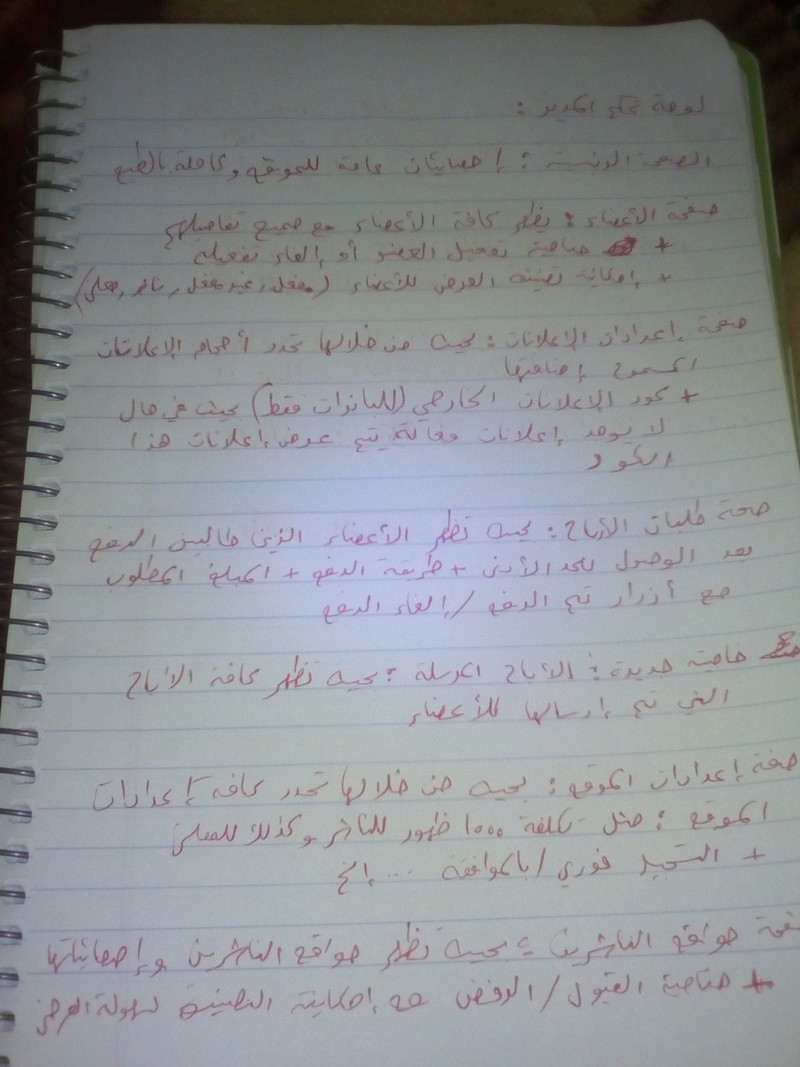 لوحة تحكم المدير :
الصفحة الرئيسية : إحصائيات عامة للموقع وكاملة بالطبع
صفحة الأعضاء : يظهر كافة الأعضاء مع جميع تفاصيلهم
+ خاصية تفعيل العضو أو إلغاء تفعيله
+ إمكانية تصنيف العرض للأعضاء (مفعل, غير مفعل, ناشر, معلن)
صفحة إعدادات الإعلانات : بحيث من خلالها تحدد أحجام الإعلانات
المسموح إضافتها
+ كود الإعلانات الخارجي (للبانرات فقط) بحيث في حال
لا يوجد إعلانات فعالة يتم عرض إعلانات هذا
الكود
صفحة طلبات الأرباح : بحيث تظهر الأعضاء الذين طالبين الدفع
بعد الوصول للحد الأدنى + طريقة الدفع + المبلغ المطلوب
مع أزرار تم الدفع / إلغاء الدفع
خاصية جديدة : الأرباح المرسلة : بحيث تظهر كافة الأرباح
التي تم إرسالها للأعضاء
صفحة إعدادات الموقع : بحيث من خلالها تحدد كافة إعدادات
الموقع : مثل تكلفة 1000 ظهور للناشر وكذلك للمعلن
+ التسجيل فوري / بالموافقة ... إلخ
صفحة مواقع الناشرين : بحيث تظهر مواقع الناشرين وإحصائياتها
+ خاصية القبول / الرفض مع إمكانية التصنيف لسهولة العرض